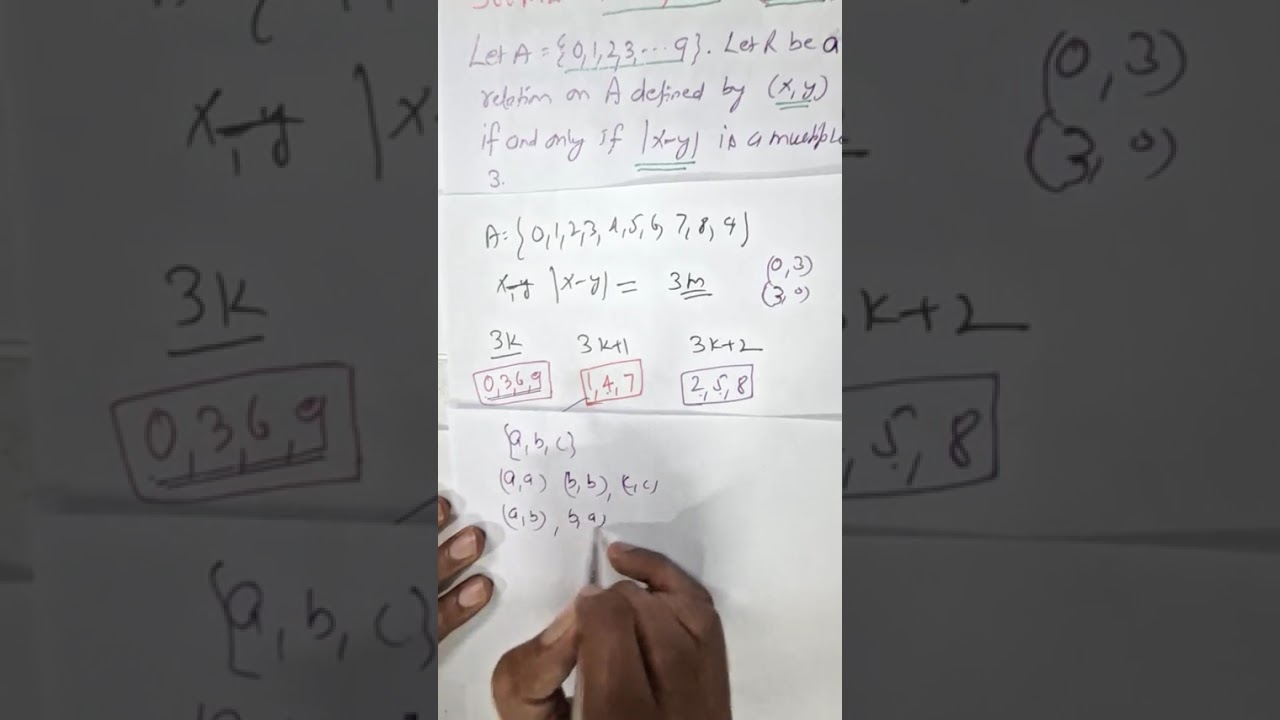 Let A = {0,1,2,3,...9}. Let R be a
relation on A defined by (x,y)
if and only if |x-y| is a multiple
3.
A={0,1,2,3,4,5,6,7,8,9}
x,y |x-y| = 3m (0,3)
(3,0)
3k 3k+1 3k+2
0,3,6,9 1,4,7 2,5,8
{a,b,c}
(a,a) (b,b), (c,c)
(a,b), b,a)